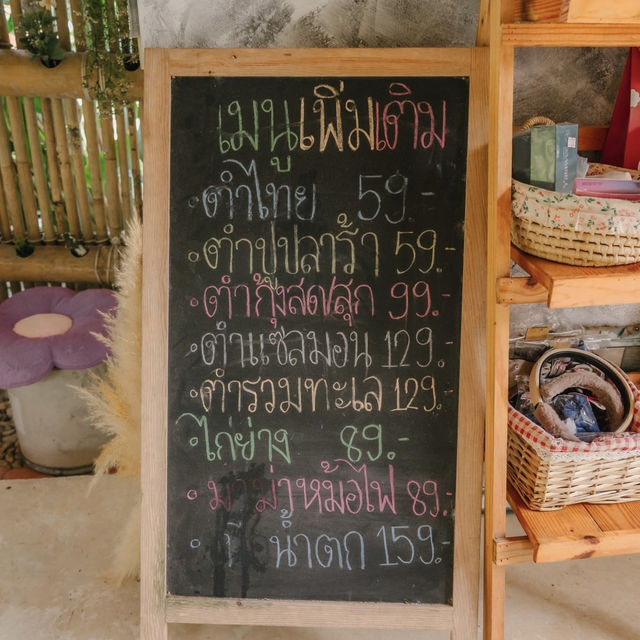 เมนูเพิ่มเติม
◦ ตำไทย 59.-
◦ ตำปูปลาร้า 59.-
◦ ตำกุ้งสด/สุก 99.-
◦ ตำแซลมอน 129.-
◦ ตำรวมทะเล 129.-
◦ ไก่ย่าง 89.-
◦ มาม่าหม้อไฟ 89.-
◦ น้ำตก 159.-